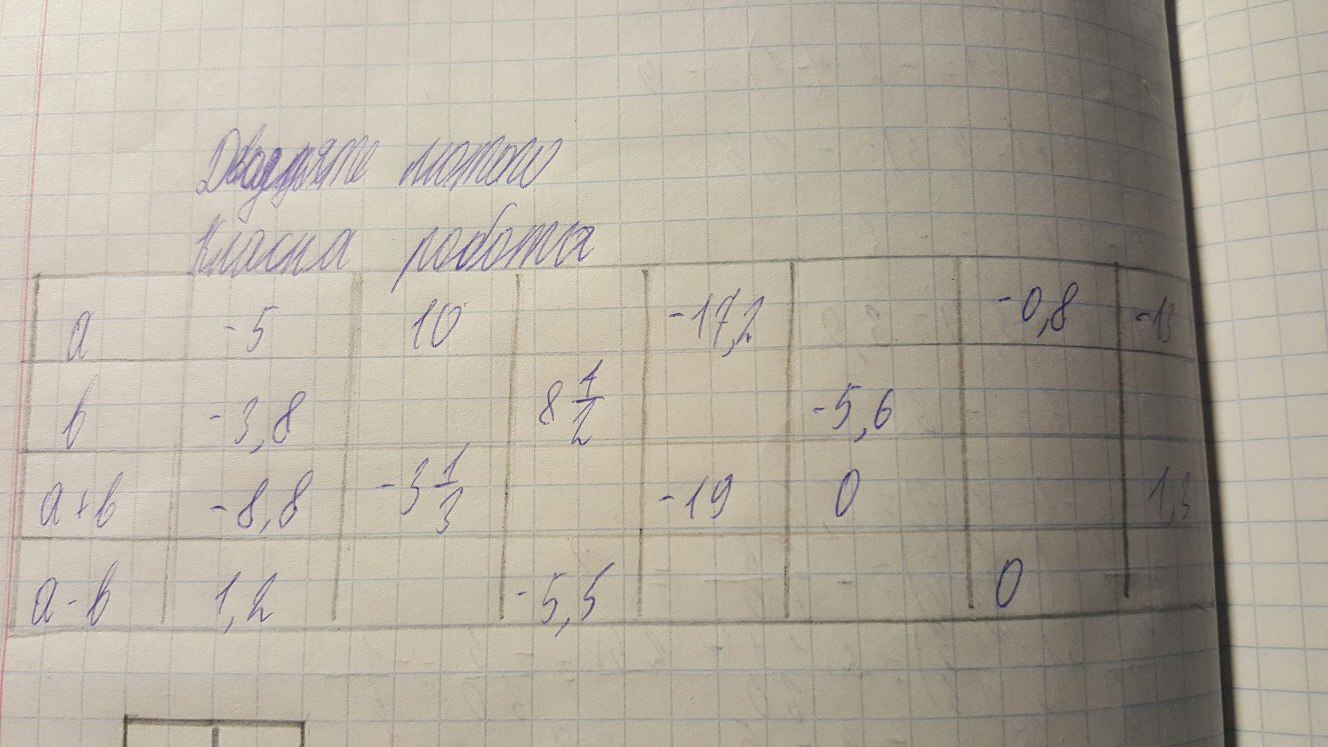 Двадцяте лютого
Класна робота
a -5 10 -17,2 -0,8
b -3,8 8 1/2 -5,6
a+b -8,8 -3 1/3 -19 0 1,3
a-b 1,2 -5,5 0